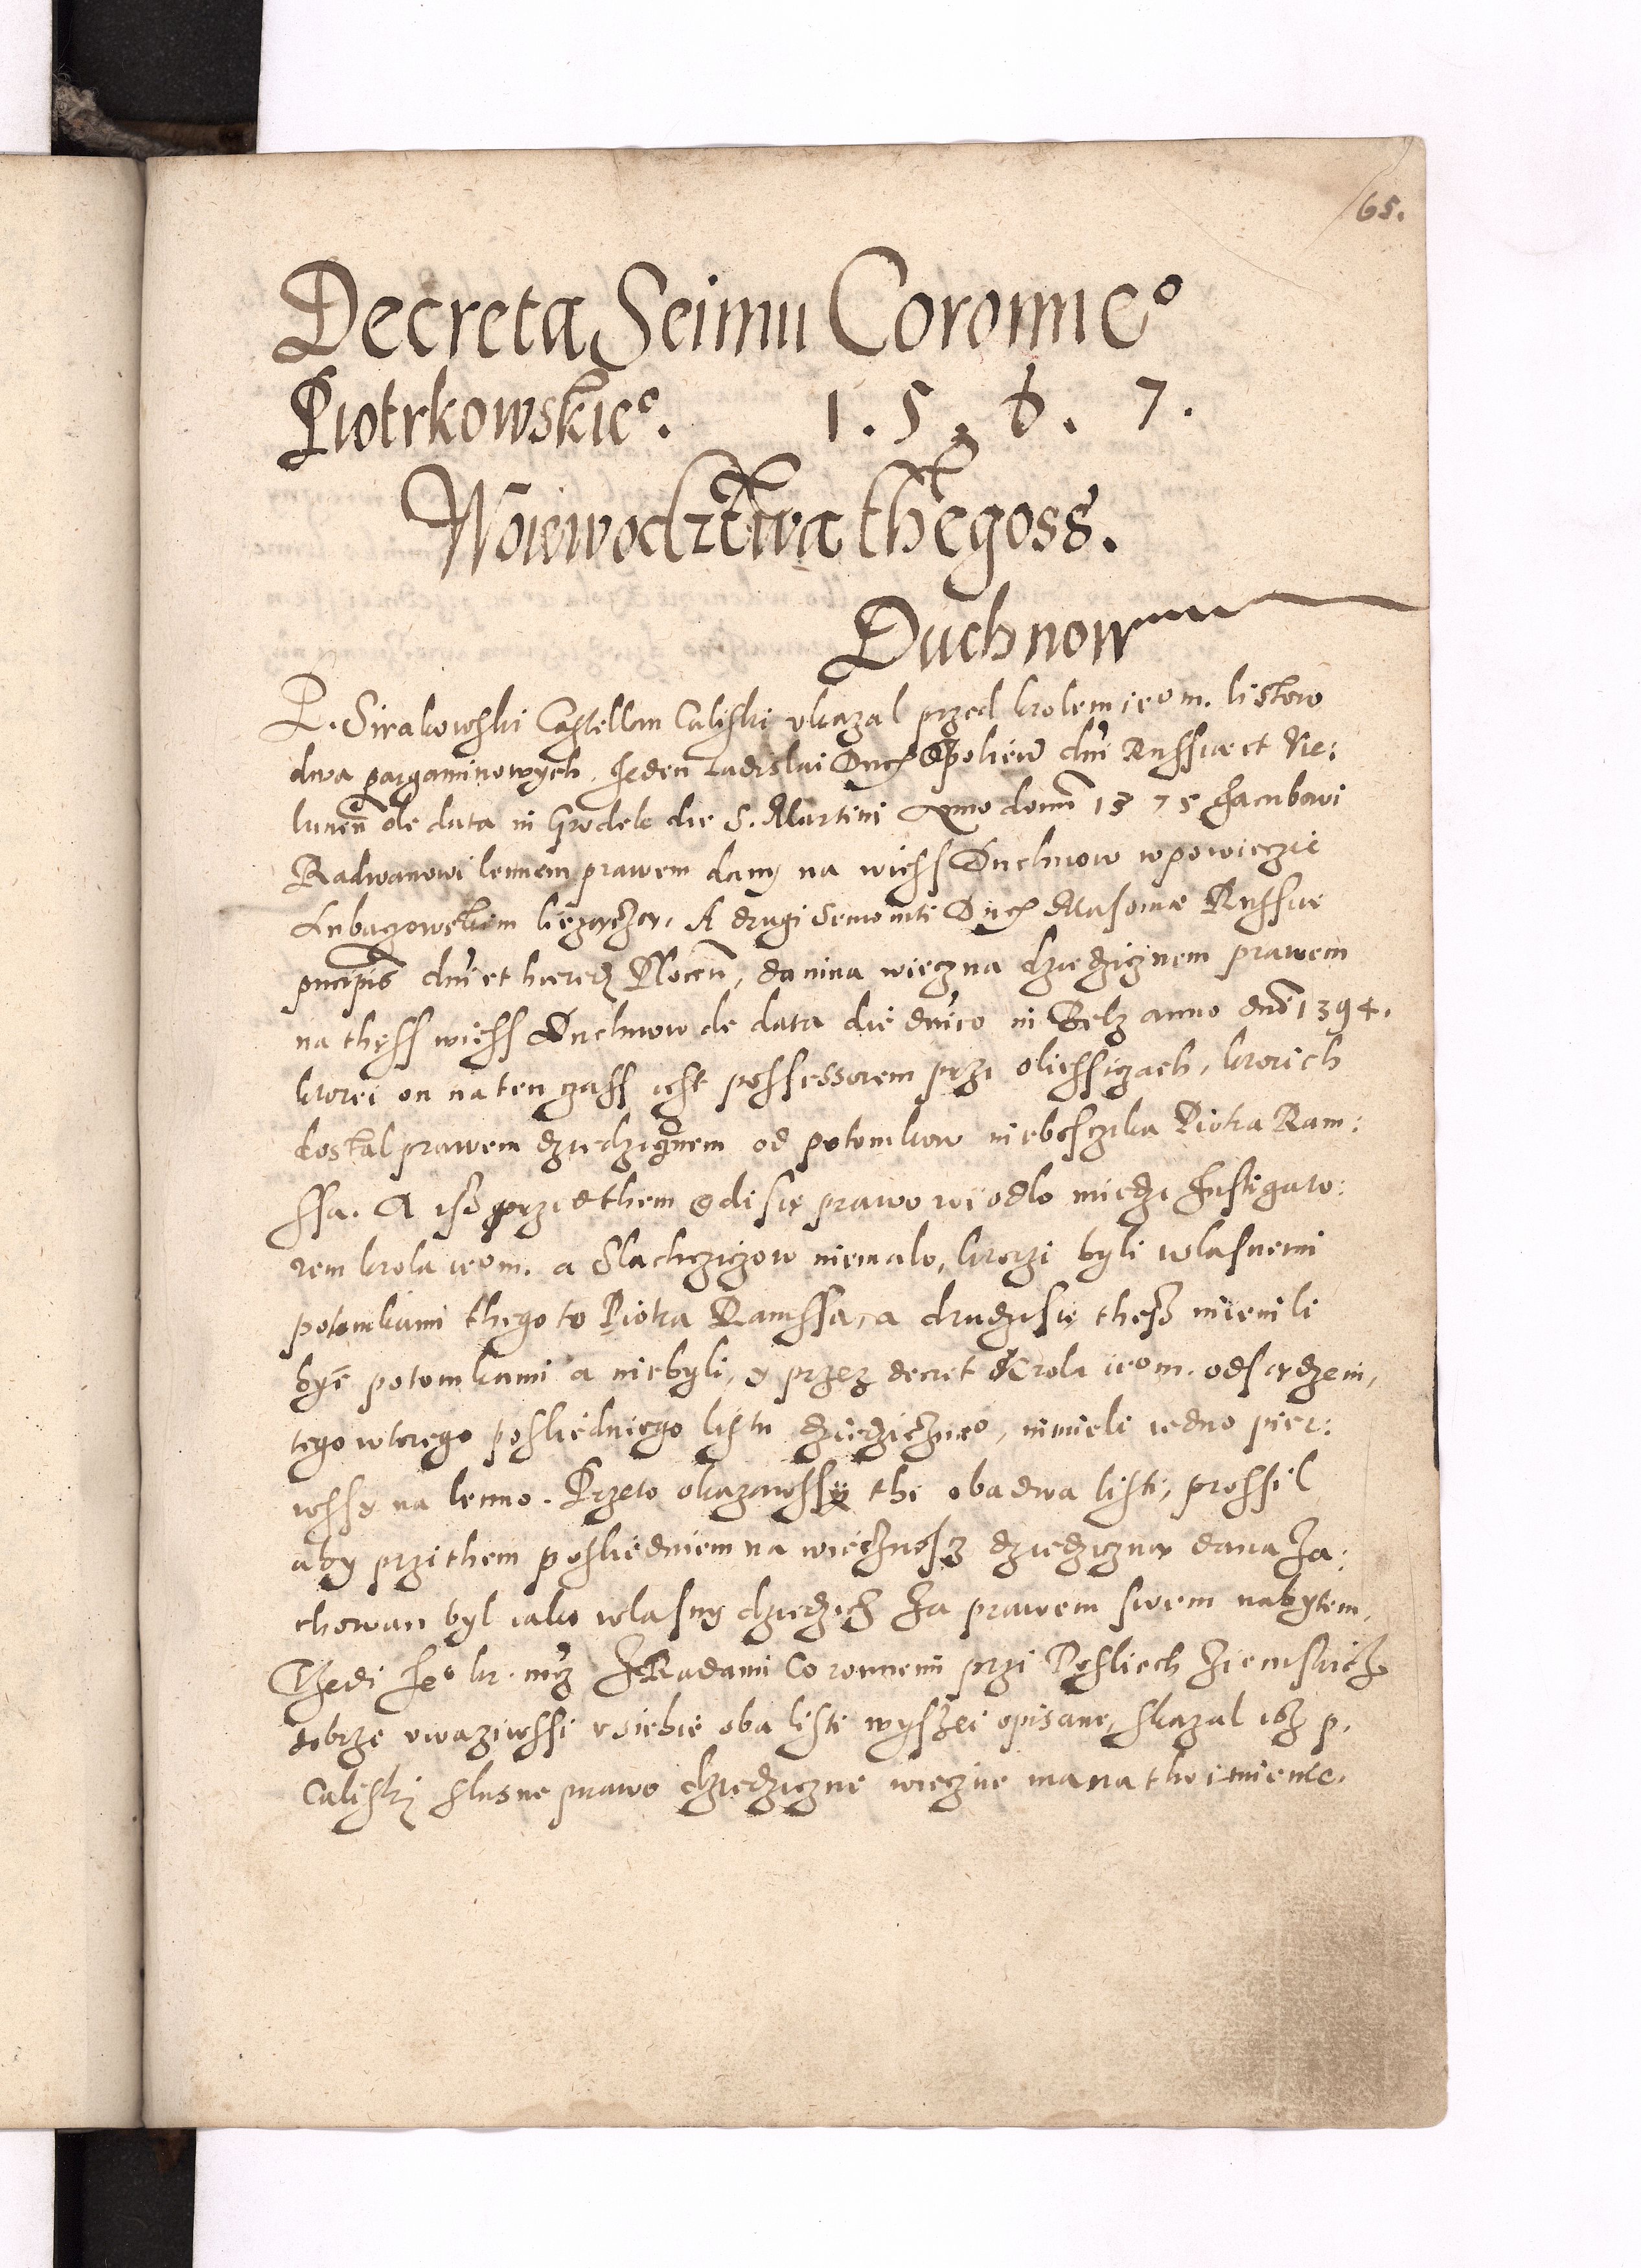 65.
Decreta Seimu Coronne⁰
Piotrkowskie⁰. 1.5.6.7.
Woiewodztwa thegoss.
Duchnow
P. Sirakowski Castellan Caliski vkazal przed krolem ie⁰ m. listow
dwa pargaminowych, Jeden Ladislai Duc Opolien dni Russiae et Vie:
lunen de data in Grodek die S. Martini Anno domi 1375 Jacubowi
Radwanowi lennem prawem dany na wiess Duchnow w powieczie
Lubaczowskiem liezącza. A drugi Semoviti Duc Masoviae Russiae
pncipis dni et haered Plocen, danina wieczna dziedzicznem prawem
na thess wiess Duchnow de data die dnico in Belz anno dni 1394.
ktorei on na ten czass iest possessorem przi oliessiczach, ktorich
dostal prawem dziedzicznem od potomkow niebosczika Piotra Ram:
ssa. A isz przedthem gdi się prawo wiodlo miedzi Instigato:
rem krola ie⁰ m. a Slachcziczow niemalo, ktorzi byli wlasnemi
potomkami thego to Piotra Ramssa, a drudzi się thesz mienili
bydz potomkami a niebyli, y przez decret Krola ie⁰ m. odsądzeni,
tego wtorego posliedniego listu dziedziczne⁰, nimieli iedno pier:
wssy na lenno. Przeto okazawssy thi obadwa listi, prossil
aby przi them posliedniem na wiecznosz dziedziczną dana Za:
chowan byl iako wlasny dziedzicz Za prawem swem nabytem,
Thedi Je⁰ kr. mcz Z Radami Coronnemi przi Posliech Ziemskich
dobrze vwaziwssi v siebie oba listi wyszei opisane, skazal isz p.
Caliski slusne prawo dziedziczne wieczne ma na tho imienie.